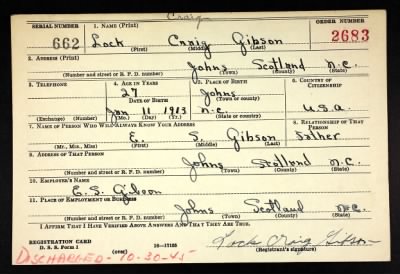 Craig
SERIAL NUMBER 1. NAME (Print) ORDER NUMBER
662 Lock Craig Gibson 2683
(First) (Middle) (Last)
2. ADDRESS (Print)
Johns Scotland N.C.
(Number and street or R. F. D. number) (Town) (County) (State)
3. TELEPHONE 4. AGE IN YEARS 5. PLACE OF BIRTH 6. COUNTRY OF CITIZENSHIP
27 Johns
DATE OF BIRTH (Town or county)
Jan 11 1913 N.C. U.S.A.
(Exchange) (No.) (Mo.) (Day) (Yr.) (State or country)
7. NAME OF PERSON WHO WILL ALWAYS KNOW YOUR ADDRESS 8. RELATIONSHIP OF THAT PERSON
E. S. Gibson Father
(Mr., Mrs., Miss) (First) (Middle) (Last)
9. ADDRESS OF THAT PERSON
Johns Scotland N.C.
(Number and street or R. F. D. number) (Town) (County) (State)
10. EMPLOYER'S NAME
E.S. Gibson
11. PLACE OF EMPLOYMENT OR BUSINESS
Johns Scotland N.C.
(Number and street or R. F. D. number) (Town) (County) (State)
I AFFIRM THAT I HAVE VERIFIED ABOVE ANSWERS AND THAT THEY ARE TRUE.
REGISTRATION CARD
D. S. S. Form 1 (over) 16—17105 Lock Craig Gibson
(Registrant's signature)
DISCHARGED - 10-30-45